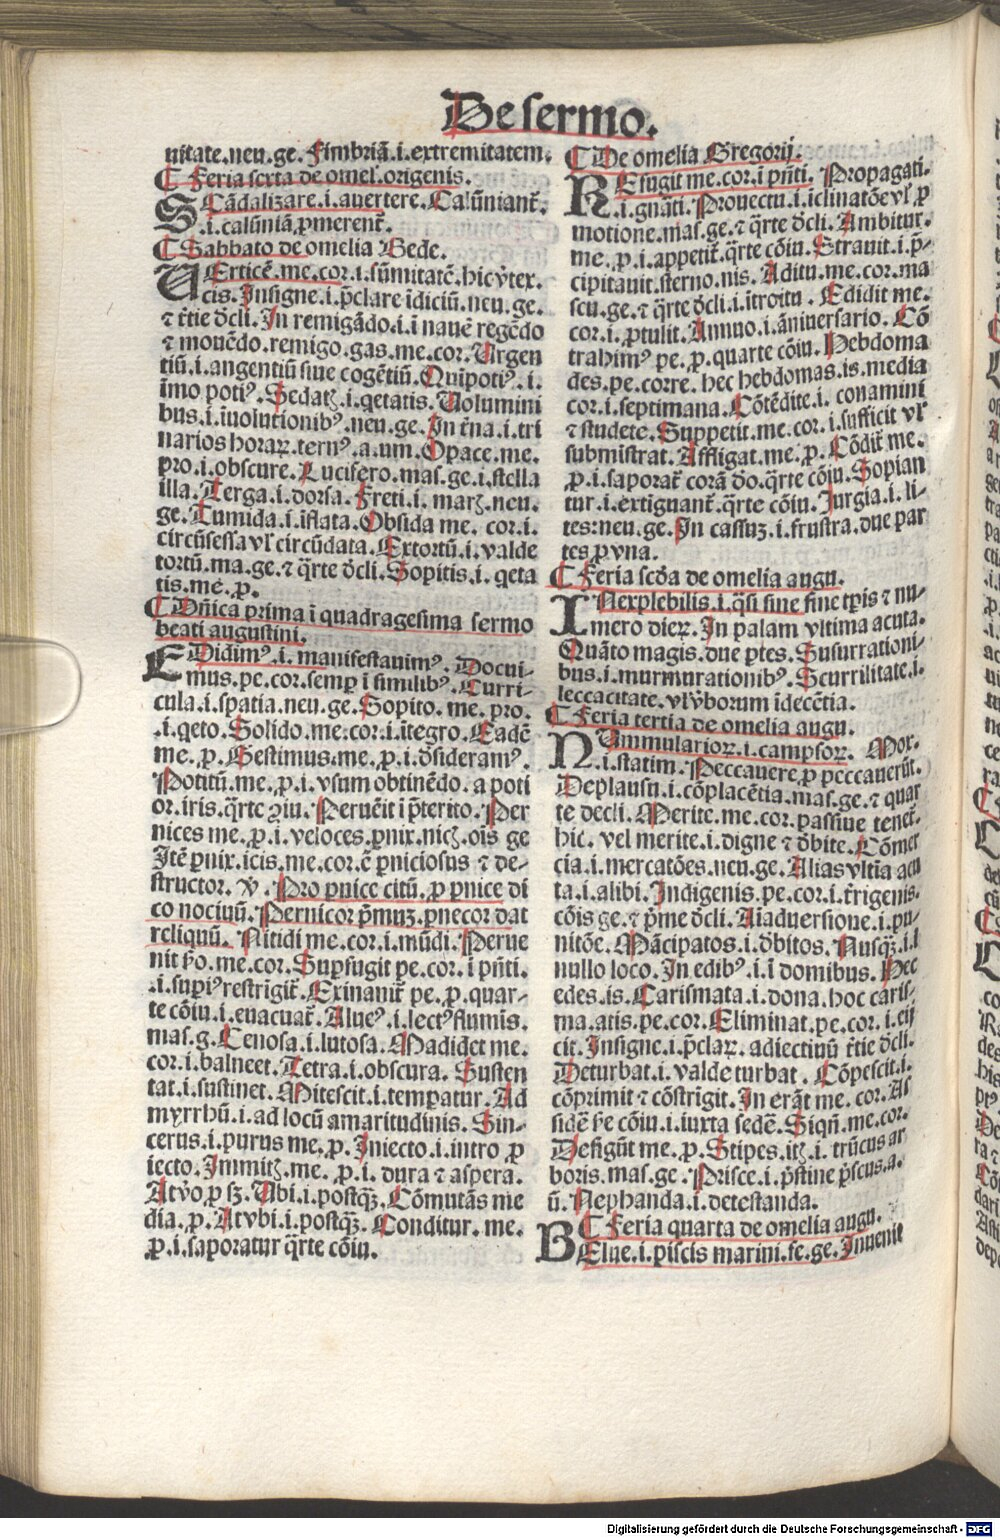 De sermo.
nitate.neu.ge. Fimbriā.i.extremitatem.
¶ Feria sexta de omel̕.origenis.
SCādalizare.i.auertere. Calūniant᷑.
.i.calūniā ꝓmerent᷑.
¶ Sabbato de omelia Bede.
UErticē.me.cor.i.sūmitatē.hic v̓tex.
cis. Insigne.i.p̄clare īdiciū.neu.ge.
⁊ t̄tie dc̄li. In remigādo.i.ī nauē regēdo
⁊ mouēdo.remigo.gas.me.cor. Urgen
tiū.i.angentiū siue cogētiū. Quīpotiꝰ.i.
īmo potiꝰ. Sedatꝫ.i.qetatis. Uolumini
bus.i.īuolutionibꝰ.neu.ge. In t̄na.i.tri
narios horaꝝ.ternꝰ.a.um. Opace.me.
pro.i.obscure. Lucifero.mas.ge.i.stella
illa. Terga.i.dorsa. Freti.i.marꝫ.neu.
ge. Tumida.i.īflata. Obsida me. cor.i.
circūsessa vl̕ circūdata. Extortū.i.valde
tortū.ma.ge.⁊ q̄rte dc̄li. Sopitis.i.qeta
tis.me.ꝓ.
¶ Dn̄ica prima ī quadragesima sermo
beati augustini.
EDidimꝰ.i.manifestauimꝰ. Docui-
mus.pe.cor.semꝑ ī similibꝰ. Curri-
cula.i.spatia.neu.ge. Sopito.me.pro.
.i.qeto. Solido.me.cor.i.ītegro. Eadē
me.ꝓ. Gestimus.me.ꝓ.i.dꝰsideramꝰ.
Potitū.me.ꝓ.i.vsum obtinēdo.a poti
or.iris.q̄rte ꝯiu. Peruēit ī p̄terito. Per
nices me.ꝓ.i.veloces.ꝑnix.nicꝫ.oīs ge
Itē ꝑnix.icis.me.cor.ē ꝑniciosus ⁊ de-
structor. ꝟ. Pro ꝑnice citū.ꝓ ꝑnice di
co nociuū. Pernicor p̄muꝫ.ꝑnecor dat
reliquū. Nitidi me.cor.i.mūdi. Perue
nit v̓o.me.cor. Suꝑfugit pe.cor.ī pn̄ti.
.i.suꝑiꝰ restrīgit᷑. Exinanit᷑ pe.ꝓ.quar-
te cōiu.i.euacuat᷑. Alueꝰ.i.lectꝰ flumīs.
mas.g. Cenosa.i.lutosa. Madidet me.
cor.i.balneet. Tetra.i.obscura. Susten
tat.i.sustinet. Mitescit.i.temꝑatur. Ad
myrrhū.i.ad locū amaritudinis. Sin-
cerus.i.purus me.ꝓ. Iniecto.i.intro ꝓ
iecto. Immitꝫ.me. ꝓ.i.dura ⁊ aspera.
At v̓o ꝓ sꝫ. Ubi.i.postqꝫ. Cōmutās me
dia.ꝓ. At vbi.i.postqꝫ. Conditur.me.
ꝓ.i.saporatur q̄rte cōiu.
¶ De omelia Gregorij.
REfugit me.cor.ī pn̄ti. Propagati.
.i.gnāti. Prouectu.i.īclinatōe vl̕ ꝓ
motione.mas.ge.⁊ q̄rte dc̄li. Ambitur.
me.ꝓ.i.appetit᷑.q̄rte cōiu. Strauit.i.p̄-
cipitauit.sterno.nis. Aditu.me.cor.ma
scu.ge.⁊ q̄rte dc̄li.i.ītroitu. Edidit me.
cor.i.ꝓtulit. Annuo.i.āniuersario. Cō
trahimꝰ pe.ꝓ.quarte cōiu. Hebdoma
des.pe.corre.hec hebdomas.is.media
cor.i.septimana. Cōtēdite.i. conamini
⁊ studete. Suppetit.me.cor.i.sufficit vl̕
submistrat. Affligat.me.ꝓ. Cōdit᷑ me.
ꝓ.i.saporat᷑ corā do.q̄rte cōiu. Sopian
tur.i.extīguant᷑.q̄rte cōiu. Iurgia.i.li-
tes:neu.ge. In cassuꝫ.i.frustra.due par
tes ꝓ vna.
¶ Feria scd̄a de omelia augu.
INexplebilis.i.q̄si sine fine tꝑis ⁊ nu-
mero dieꝝ. In palam vltima acuta.
Quāto magis.due ꝑtes. Susurrationi-
bus.i.murmurationibꝰ. Scurrilitate.i.
leccacitate.vl̕ v̓borum īdecētia.
¶ Feria tertia de omelia augu.
NUmmularioꝝ.i.campsoꝝ. Mox.
.i.statim. Peccauere ꝓ peccauerūt.
Deplausu.i.cōplacētia.mas.ge.⁊ quar
te decli. Merite.me.cor.passiue tenet᷑.
hic. vel merite.i.digne ⁊ dꝰbite. Cōmer
cia.i.mercatōes.neu.ge. Alias vltīa acu
ta.i.alibi. Indigenis.pe.cor.i.t̄rigenis.
cōis ge.⁊ p̄me dc̄li. Aīaduersione.i.pu-
nitōe. Mācipatos.i.dꝰbitos. Nusqꝫ.i.ī
nullo loco. In edibꝰ.i.ī domibus. Hec
edes.is. Carismata.i.dona.hoc caris-
ma.atis.pe.cor. Eliminat.pe.cor.i.eij
cit. Insigne.i.p̄claꝝ. adiectiuū t̄tie dc̄li.
Deturbat.i.valde turbat. Cōpescit.i.
cōprimit ⁊ cōstrigit. In erāt me. cor. As
sidē v̓e cōiu.i.iuxta sedē. Siqn̄.me.cor.
Defigūt me.ꝓ. Stipes.itꝫ.i. trūcus ar
boris.mas.ge. Prisce.i.p̄stine p̄scus.a.
ū. Nephanda.i.detestanda.
¶ Feria quarta de omelia augu.
BElue.i.piscis marini.fe.ge. Inuenit
Digitalisierung gefördert durch die Deutsche Forschungsgemeinschaft - DFG